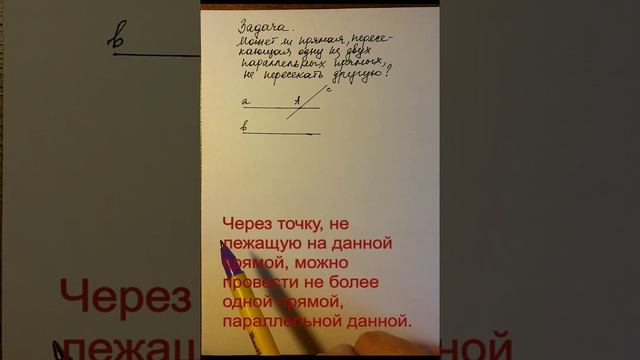 Задача.
Может ли прямая, пересе-
кающая одну из двух
параллельных прямых,
не пересекать другую?
c
a A
b
Через точку, не
лежащую на данной
прямой, можно
провести не более
одной прямой,
параллельной данной.
b
Через